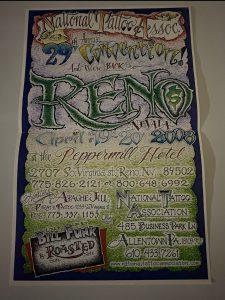 National Tattoo Assoc.
29th Annual
Convention!
And We're BACK in
RENO
April 15-20 2008
at the Peppermill Hotel
2707 So. Virginia St. Reno, NV. 89502
775-826-2121 or 800-648-6992
Apache Jill
775.337.1153
National Tattoo
Association
485 Business Park Ln
Allentown PA 18109
610.433.7261
Bill Funk
is
Roasted